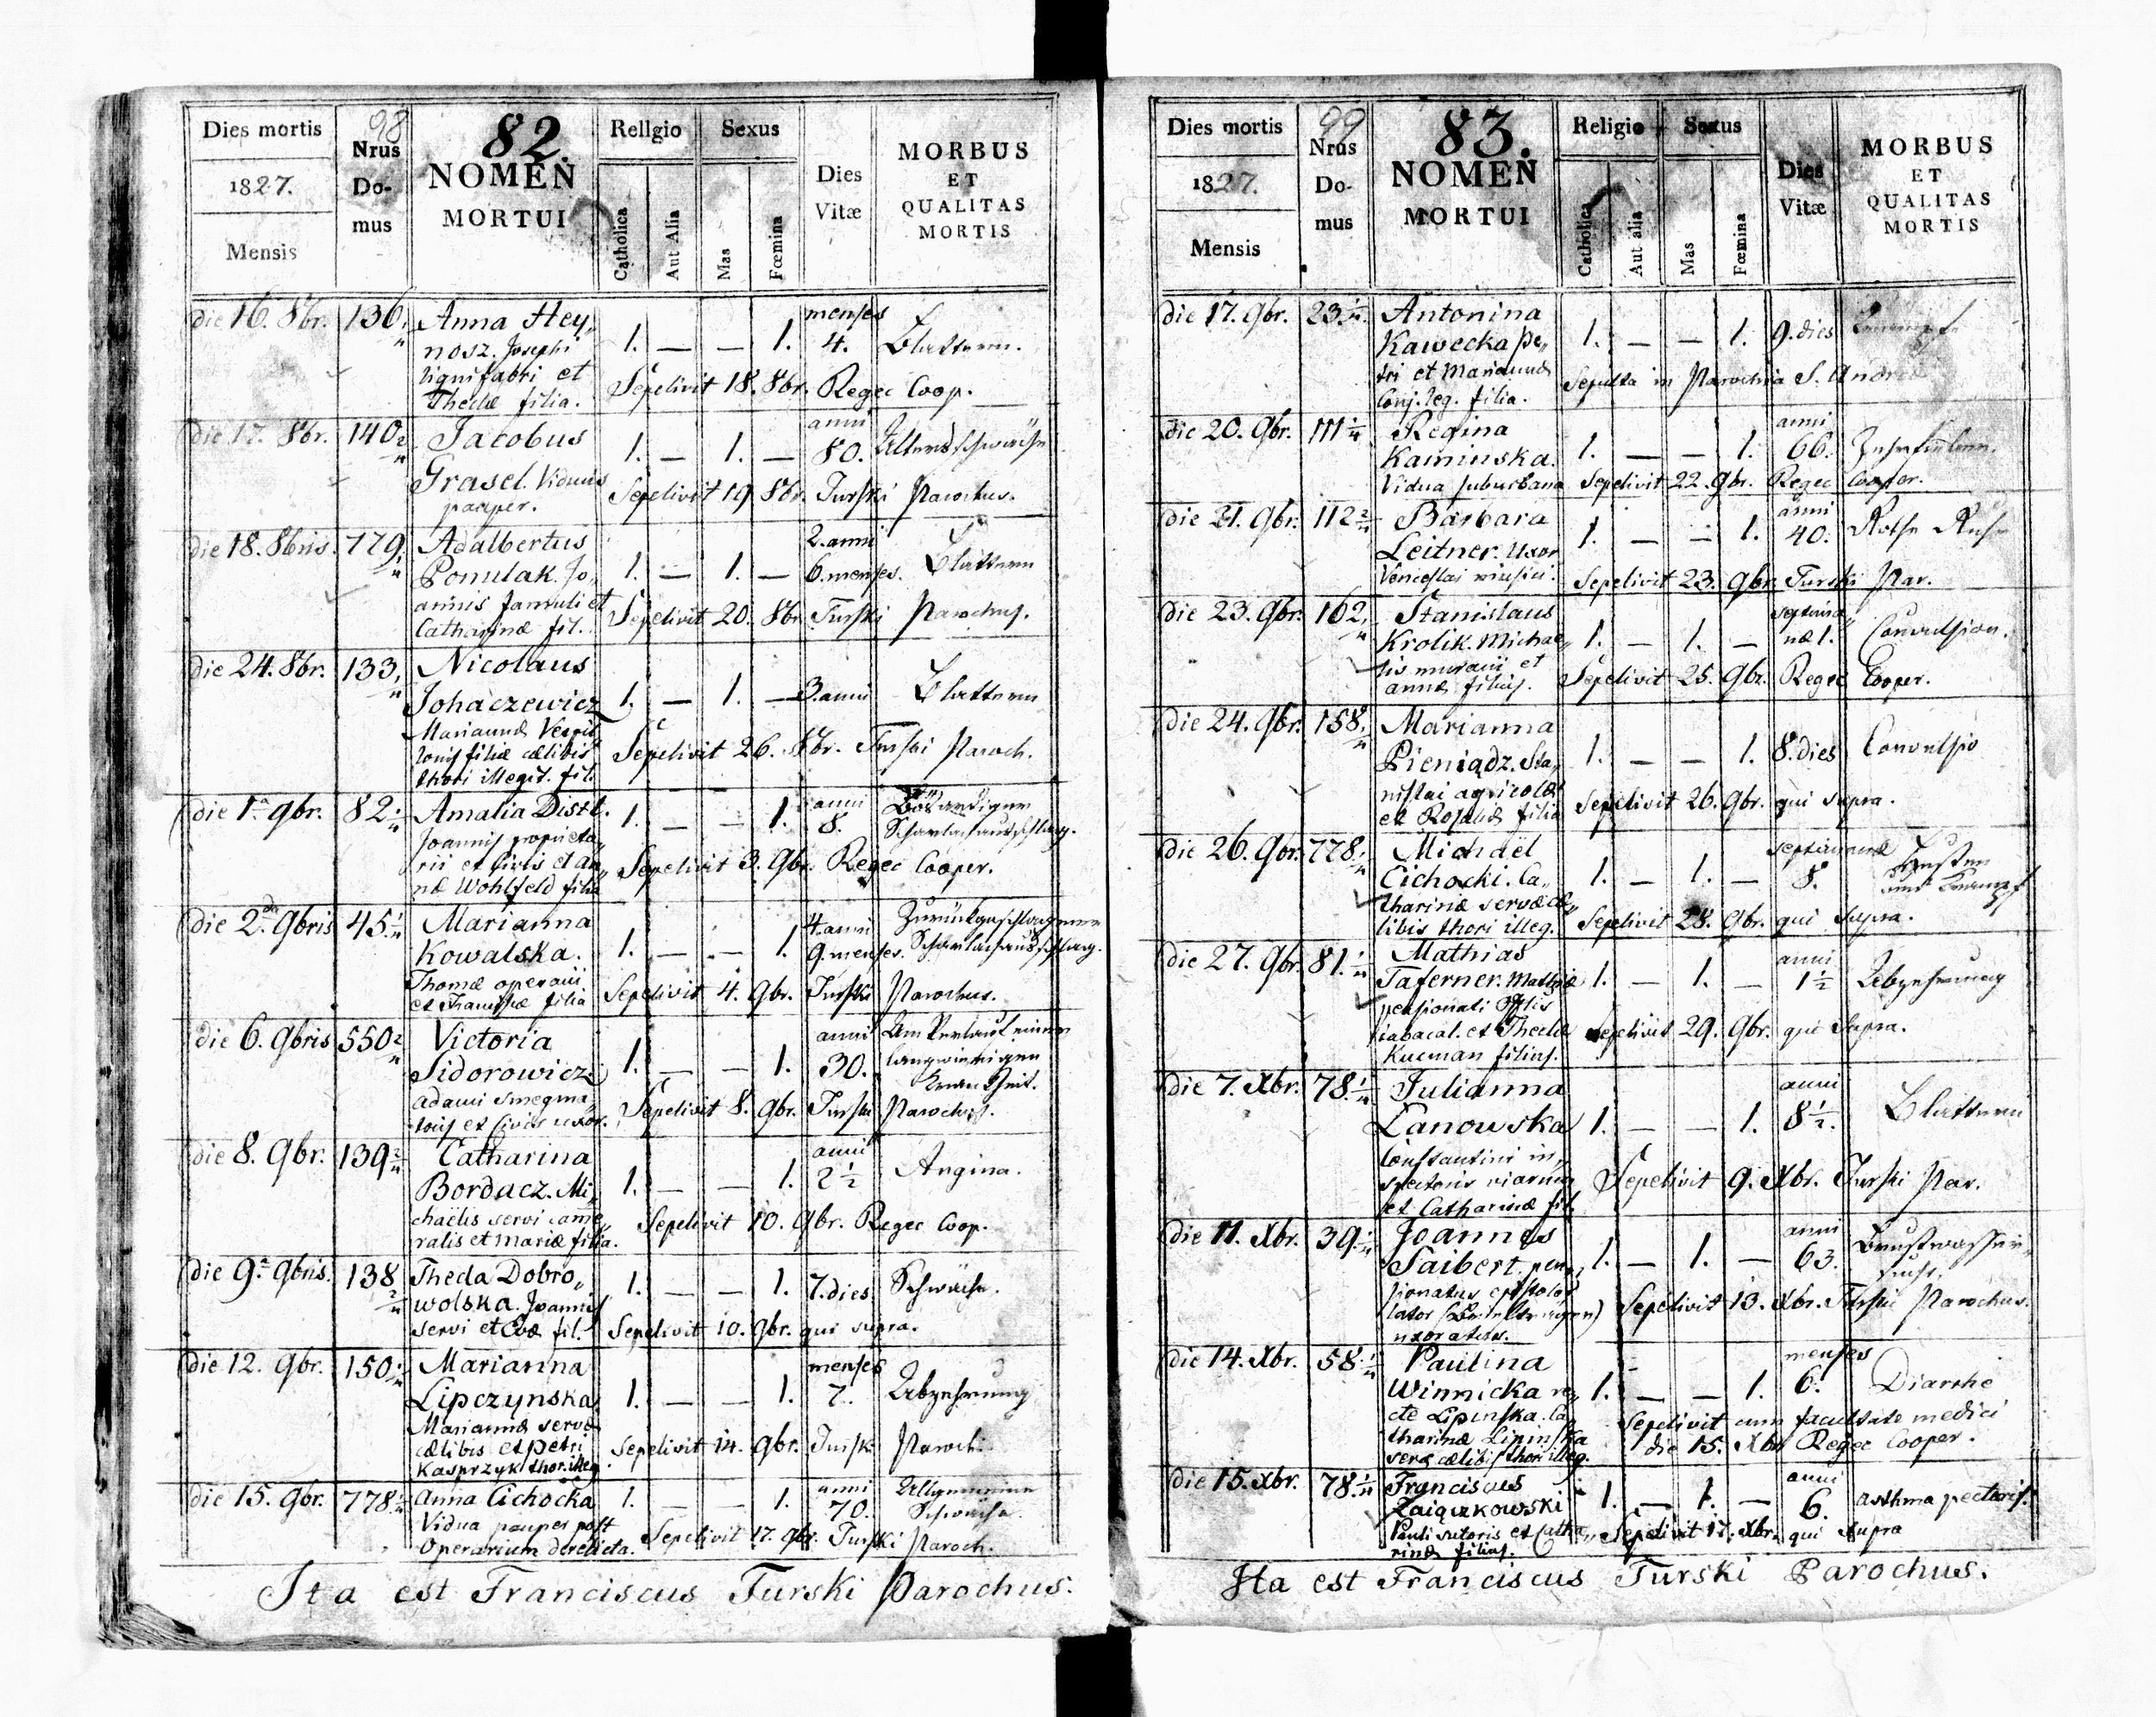 Dies mortis
1827.
Mensis
98
Nrus
Do-
mus
82.
NOMEN
MORTUI
Religio
Catholica
Aut Alia
Sexus
Mas
Fœmina
Dies
Vitæ
MORBUS
ET
QUALITAS
MORTIS
die 16. 8br. 136.
Anna Hey„
nosz. Josephi
lignifabri et
Theclæ filia.
1. — — 1. menses 4. Blattern.
Sepelivit 18. 8br. Regec Coop.
die 17. 8br. 140
Jacobus
Grasel. Viduus
pauper.
1. — 1. — anni 80. Altersschwäche
Sepelivit 19. 8br. Turski Parochus.
die 18. 8bris. 779
Adalbertus
Ponulak. Jo„
annis famuli et
Catharinæ fil.
1. — 1. — 2. anni 6. menses. Blattern
Sepelivit 20. 8br. Turski Parochus.
die 24. 8br. 133
Nicolaus
Johaczewicz
Mariannæ
filiæ cælibis
thori illegit. fil.
1. — 1. — 3. anni Blattern
Sepelivit 26. 8br. Turski Paroch.
die 1ª 9br. 82
Amalia Distl.
Joannis proprieta„
rii et Civis et An„
næ Wohlfeld filia
1. — — 1. anni 8. Bösartigen
Scharlachausschlag.
Sepelivit 3. 9br. Regec Cooper.
die 2da 9bris 45
Marianna
Kowalska.
Thomæ operarii
et Franciscæ filia
1. — — 1. 4. anni 9. menses. Zurückgeschlagenen
Scharlachausschlag.
Sepelivit 4. 9br. Turski Parochus.
die 6. 9bris 550
Victoria
Sidorowicz
Adami smegma„
toris et Civis uxor.
1. — — 1. anni 30. Am Verlauf einer
langwierigen
Krankheit.
Sepelivit 8. 9br. Turski Parochus.
die 8. 9br. 139
Catharina
Bordacz. Mi„
chaëlis servi came„
ralis et Mariæ filia.
1. — — 1. anni 2½ Angina.
Sepelivit 10. 9br. Regec Coop.
die 9ª 9bris. 138
Thecla Dobro„
wolska. Joannis
servi et Evæ fil.
1. — — 1. 7. dies Schwäche.
Sepelivit 10. 9br. qui supra.
die 12. 9br. 150
Marianna
Lipczynska
Mariannæ servæ
cælibis et Petri
Kasprzyk thor. illeg.
1. — — 1. menses 7. Abzehrung
Sepelivit 14. 9br. Turski Paroch.
die 15. 9br. 778
Anna Cichocka
Vidua pauper post
Operarium derelicta.
1. — — 1. anni 70. Allgemeine
Schwäche.
Sepelivit 17. 9br. Turski Paroch.
Ita est Franciscus Turski Parochus.
Dies mortis
1827.
Mensis
99
Nrus
Do-
mus
83.
NOMEN
MORTUI
Religio
Catholica
Aut alia
Sexus
Mas
Fœmina
Dies
Vitæ
MORBUS
ET
QUALITAS
MORTIS
die 17. 9br. 23.
Antonina
Kawecka Pe„
tri et Mariannæ
Conj. leg. filia.
1. — — 1. 9. dies
Sepulta in Parochia S. Andreæ
die 20. 9br. 111
Regina
Kaminska.
Vidua suburbana
1. — — 1. anni 66.
Sepelivit 22. 9br. Regec Cooper.
die 21. 9br. 112
Barbara
Leitner. Uxor
Venceslai musici.
1. — — 1. anni 40. Rothe Ruhr
Sepelivit 23. 9br. Turski Par.
die 23. 9br. 162
Stanislaus
Krolik. Michae„
lis murarii et
Annæ filius.
1. — 1. — septima„
næ 1. Convulsion.
Sepelivit 25. 9br. Regec Cooper.
die 24. 9br. 158
Marianna
Pieniądz. Sta„
nislai agricolæ
et Rosaliæ filia
1. — — 1. 8. dies Convulsio
Sepelivit 26. 9br. qui supra.
die 26. 9br. 778
Michaël
Cichocki. Ca„
tharinæ servæ cæ„
libis thori illeg.
1. — 1. — septimanæ 8. Husten
und Krampf
Sepelivit 28. 9br. qui supra.
die 27. 9br. 81
Mathias
Taferner. Mathiæ
pensionati Offlis
tabacal. et Theclæ
Kucman filius.
1. — 1. — anni 1½ Abzehrung
Sepelivit 29. 9br. qui supra.
die 7. Xbr. 78.
Julianna
Lanowska
Constantini in„
spectoris viarum
et Catharinæ fil.
1. — — 1. anni 8½. Blattern
Sepelivit 9. Xbr. Turski Par.
die 11. Xbr. 39.
Joannes
Saibert. pen„
sionatus epistolar
lator (Briefträger)
uxoratus.
1. — 1. — anni 63. Brustwasser„
sucht.
Sepelivit 13. Xbr. Turski Parochus.
die 14. Xbr. 58.
Paulina
Winnicka re„
cte Lipinska. Ca„
tharinæ Lipinska
servæ cælibis thori illeg.
1. — — 1. menses 6. Diarrhe
Sepelivit cum facultate medici
die 15. Xbr Regec Cooper.
die 15. Xbr. 78.
Franciscus
Zaiączkowski
Pauli sutoris et Catha„
rinæ filius.
1. — 1. — anni 6. asthma pectoris.
Sepelivit 17. Xbr. qui supra
Ita est Franciscus Turski Parochus.